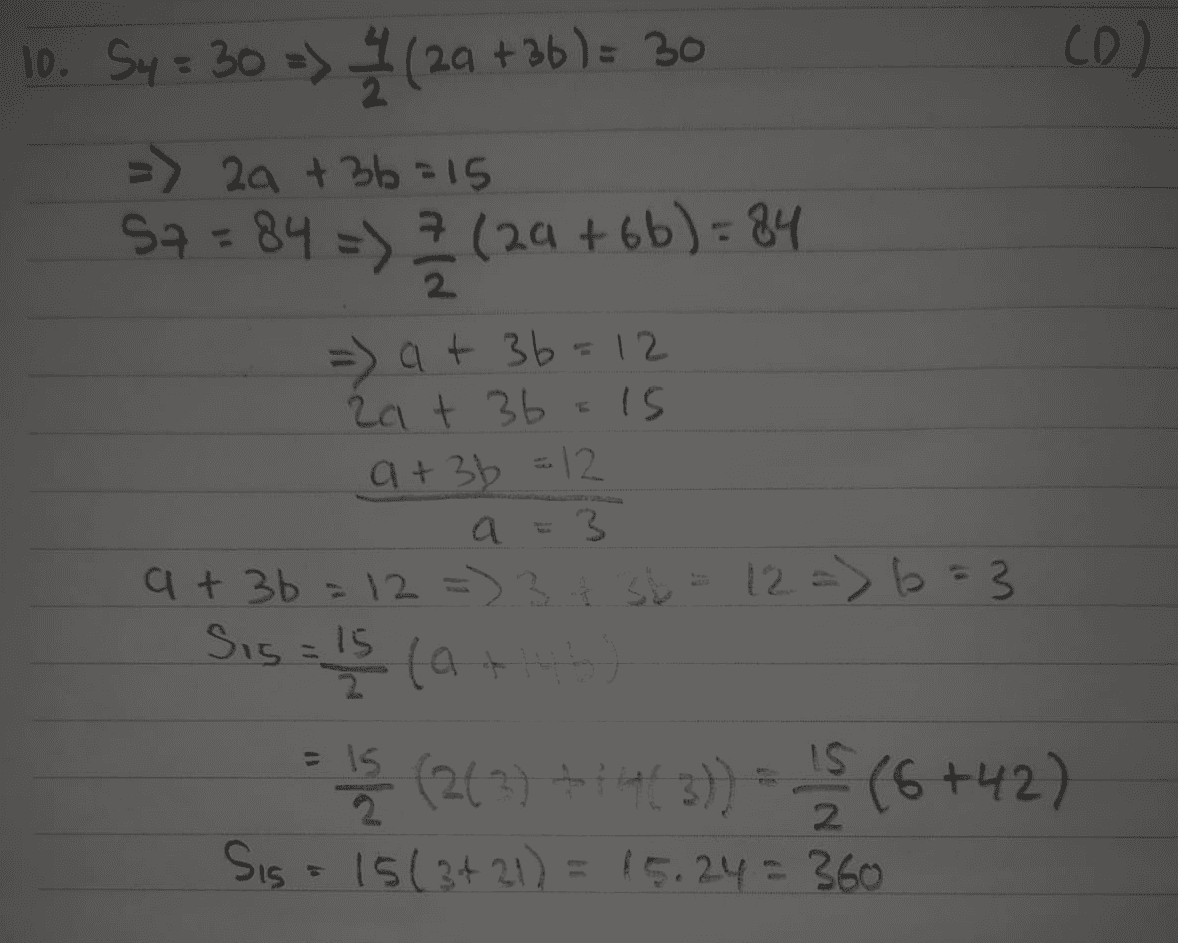 10. S4 = 30 => 4/2 (2a + 3b) = 30 (D)
=> 2a + 3b = 15
S7 = 84 => 7/2 (2a + 6b) = 84
=> a + 3b = 12
2a + 3b = 15
a + 3b = 12
a = 3
a + 3b = 12 => 3 + 3b = 12 => b = 3
S15 = 15/2 (a + 14b)
= 15/2 (2(3) + 14(3)) = 15/2 (6 + 42)
S15 = 15(3 + 21) = 15.24 = 360